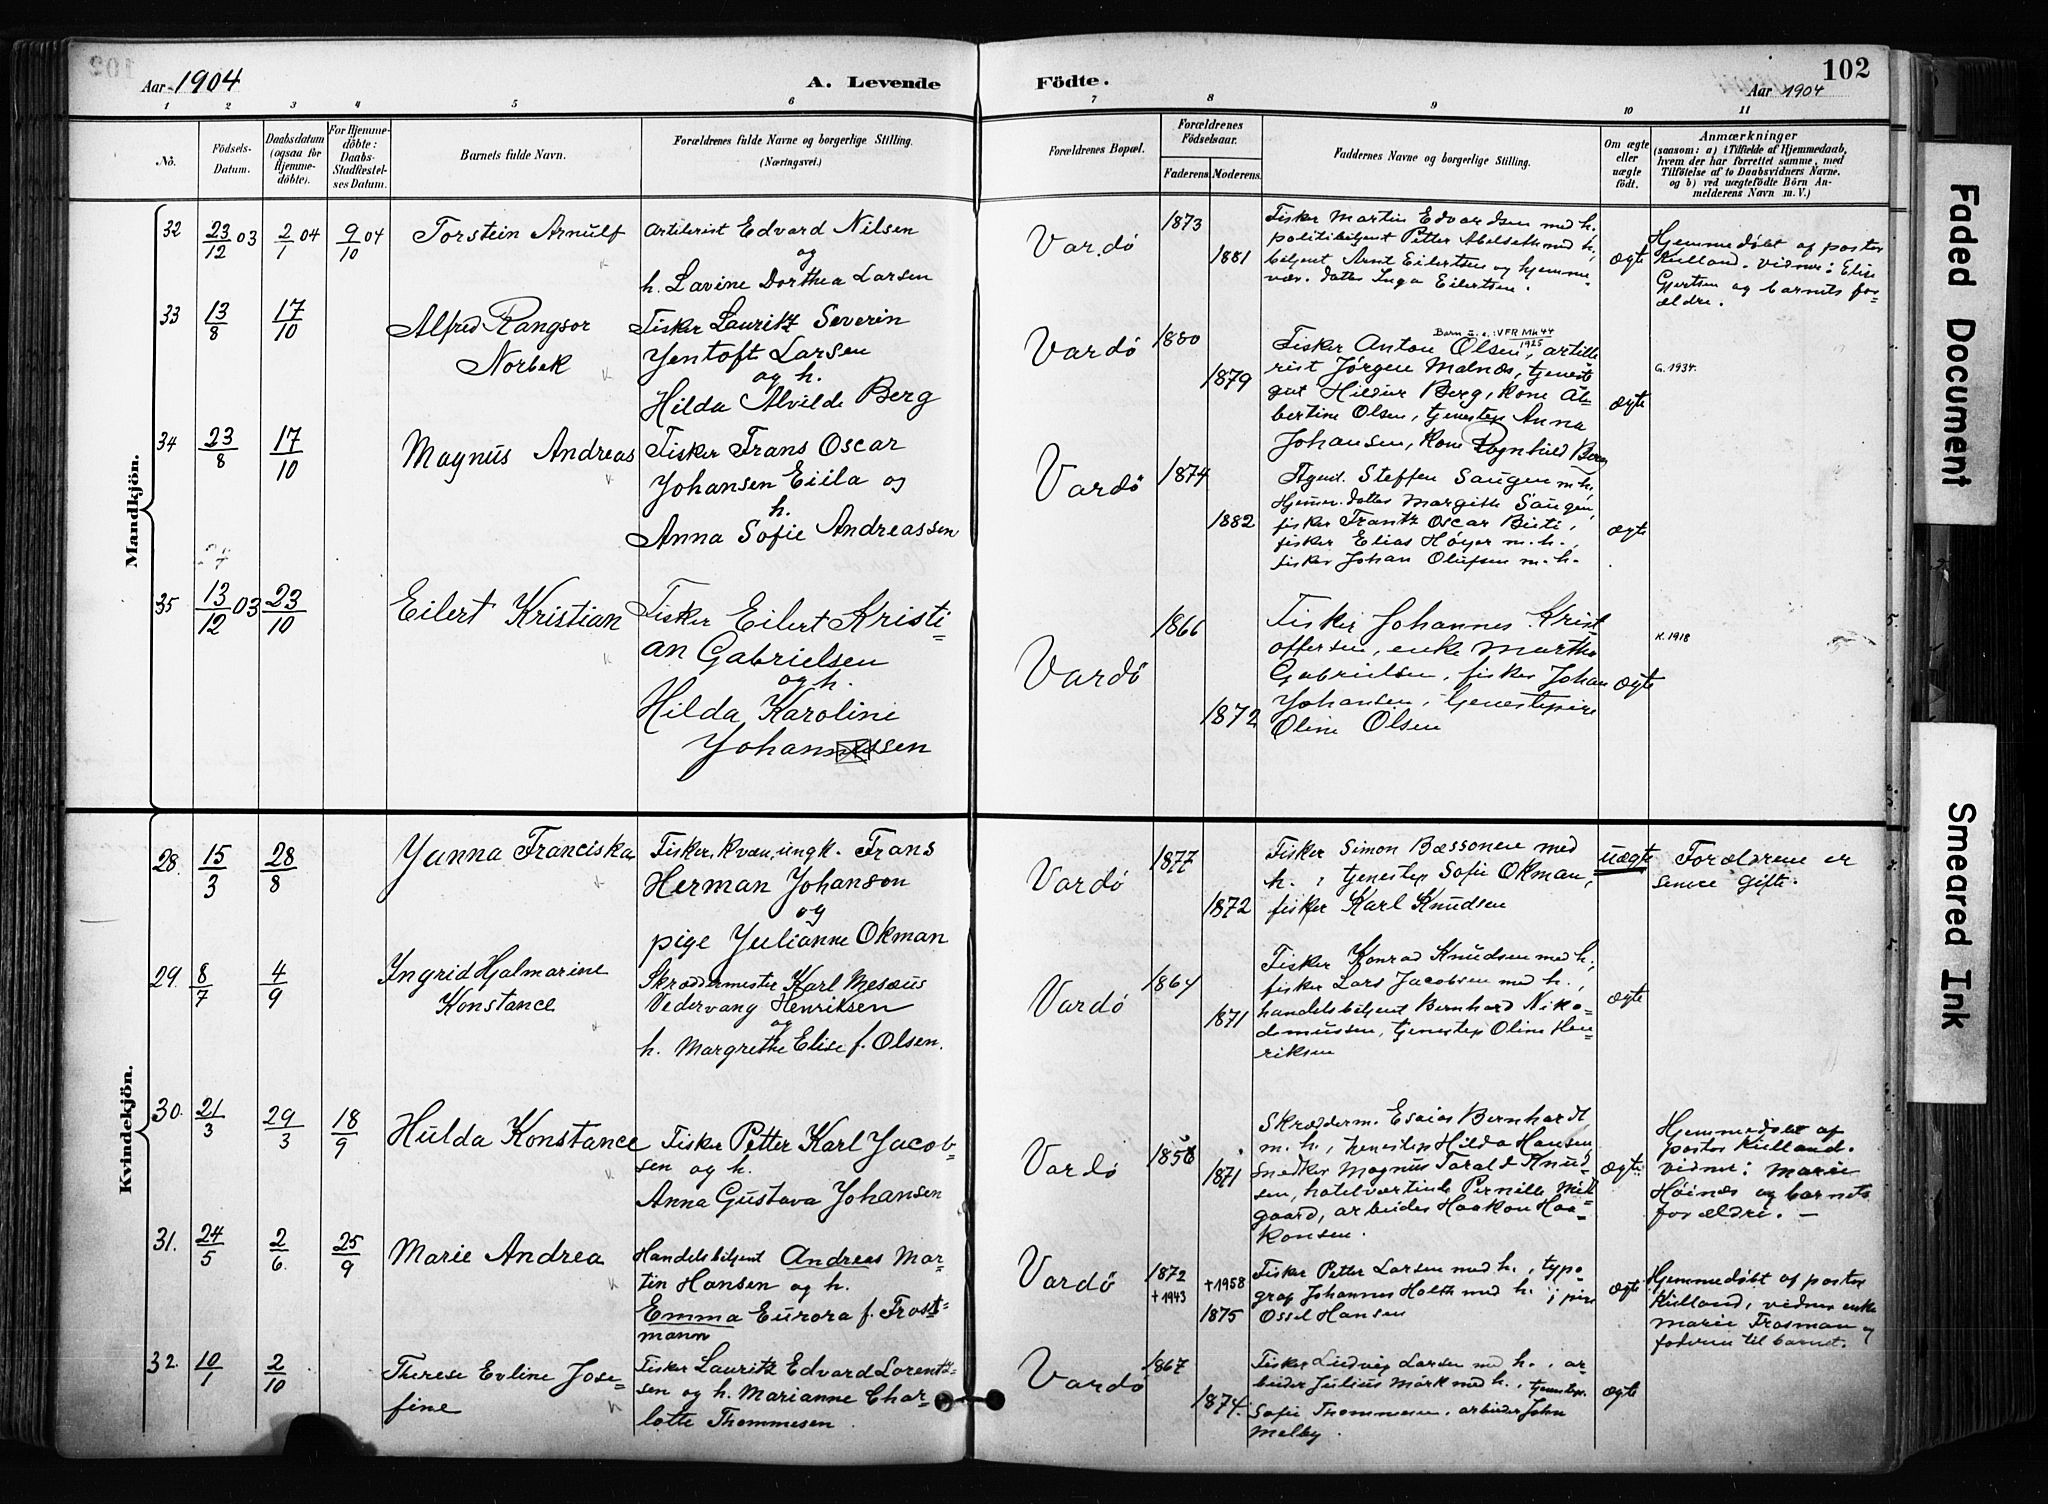 102
Aar 1904
A. Levende
Födte.
Aar 1904
1 2 3 4 5 6 7 8 9 10 11
No.
Födsels-
Datum.
Daabsdatum
(ogsaa for
Hjemme-
døbte).
For Hjemme-
döbte:
Daabs-
Stadfæstel-
ses Datum.
Barnets fulde Navn.
Forældrenes fulde Navne og borgerlige Stilling.
(Næringsvei.)
Forældrenes Bopæl.
Forældrenes
Födselsaar.
Faderens. Moderens.
Faddernes Navne og borgerlige Stilling.
Om ægte
eller
uægte
födt.
Anmærkninger
(saasom: a) i Tilfælde af Hjemmedaab,
hvem der har forrettet samme, med
Tilföielse af to Daabsvidners Navne.
og b) ved uægtefödte Börn An-
melderens Navn m. V.)
Mandkjön.
32
23/12 03
2/1 04
9/10 04
Torstein Arnulf
Artilerist Edvard Nilsen
og
h. Lavine Dorthea Larsen
Vardö
1873
1881
Fisker Martin Edvardsen med h.,
politibetjent Petter Abelseth med h,
betjent Arnt Eilertsen og hjemme-
vær. datter Inga Eilertsen.
ægte
Hjemmedøbt af pastor
Kielland. Vidner: Elise
Gjertsen og barnets for-
ældre.
33
13/8
17/10
Alfred Rangsor
Norbek
Fisker Lauritz Severin
Jentoft Larsen
og h.
Hilda Alvilde Berg
Vardö
1880
1879
Barn u. e.: VFR Mk 44
1925
Fisker Anton Olsen, artille
rist Jørgen Malnæs, tjeneste
gut Hildur Berg, kone Al-
bertine Olsen, tjenestep Anna
Johansen, Kone Ragnhild Berg
ægte
G. 1934.
34
23/8
17/10
Magnus Andreas
Fisker Frans Oscar
Johansen Eiila og
h.
Anna Sofie Andreassen
Vardö
1874
1882
Agent. Steffen Saugen m. h.
Hjemmev. datter Margith Saugen,
fisker Frantz Oscar Bieti,
fisker Elias Höyer m. h.,
fisker Johan Olufsen m. h.
ægte
35
13/12 03
23/10
Eilert Kristian
Fisker Eilert Kristi-
an Gabrielsen
og h.
Hilda Karoline
Johannessen
Vardö
1866
1872
Fisker Johannes Krist
offersen, enke Martha
Gabrielsen, fisker Johan
Johansen, tjenestepige
Oline Olsen
ægte
K. 1918
Kvindekjön.
28.
15/3
28/8
Janna Franciska
Fisker, kvæn, ungk. Frans
Herman Johanson
og
pige Julianne Okman
Vardö
1877
1872
Fisker Simon Bæssonen med
h., tjenestep Sofie Okman,
fisker Karl Knudsen
uægte
Forældrene er
senere gifte.
29.
8/7
4/9
Ingrid Hjalmarine
Konstance
Skræddermester Karl Mesæus
Vedervang Henriksen
og
h. Margrethe Elise f. Olsen.
Vardö
1864
1871
Fisker Konrad Knudsen med h.,
fisker Lars Jacobsen med h.,
handelsbetjent Bernhard Niko-
demussen, tjenestep Oline Hen
riksen
ægte
30.
21/3
29/3
18/9
Hulda Konstance
Fisker Petter Karl Jacob-
sen og h.
Anna Gustava Johansen
Vardö
1858
1871
Skrædderm. Esaias Bernhardt
m. h., tjenestep Hilda Hansen,
snedker Magnus Tarald Knud-
sen, hotelværtinde Pernille Mid
gaard, arbeider Haakon Haa-
konsen.
ægte
Hjemmedøbt af
pastor Kielland.
vidner: Marie
Höinæs og barnets
forældre. —
31.
24/5
2/6
25/9
Marie Andrea
Handelsbetjent Andreas Mar-
tin Hansen og h.
Emma Eurora f. Frost-
mann
Vardö
1872
+1943
+1958
1875
Fisker Petter Larsen med h., typo-
graf Johannes Holth med h., pige
Ossel Hansen
ægte
Hjemmedøbt af pastor
Kielland, vidner enke
Marie Frosman og
faderen til barnet.
32.
10/1
2/10
Therese Evline Jose-
fine
Fisker Lauritz Edvard Lorentz-
sen og h. Marianne Char-
lotte Thommesen
Vardö
1867
1874.
Fisker Ludvig Larsen med h., ar-
beider Julius Mörk med h., tjenestep.
Sofie Thommesen, arbeider John
Melby.
ægte
Faded Document
Smeared Ink